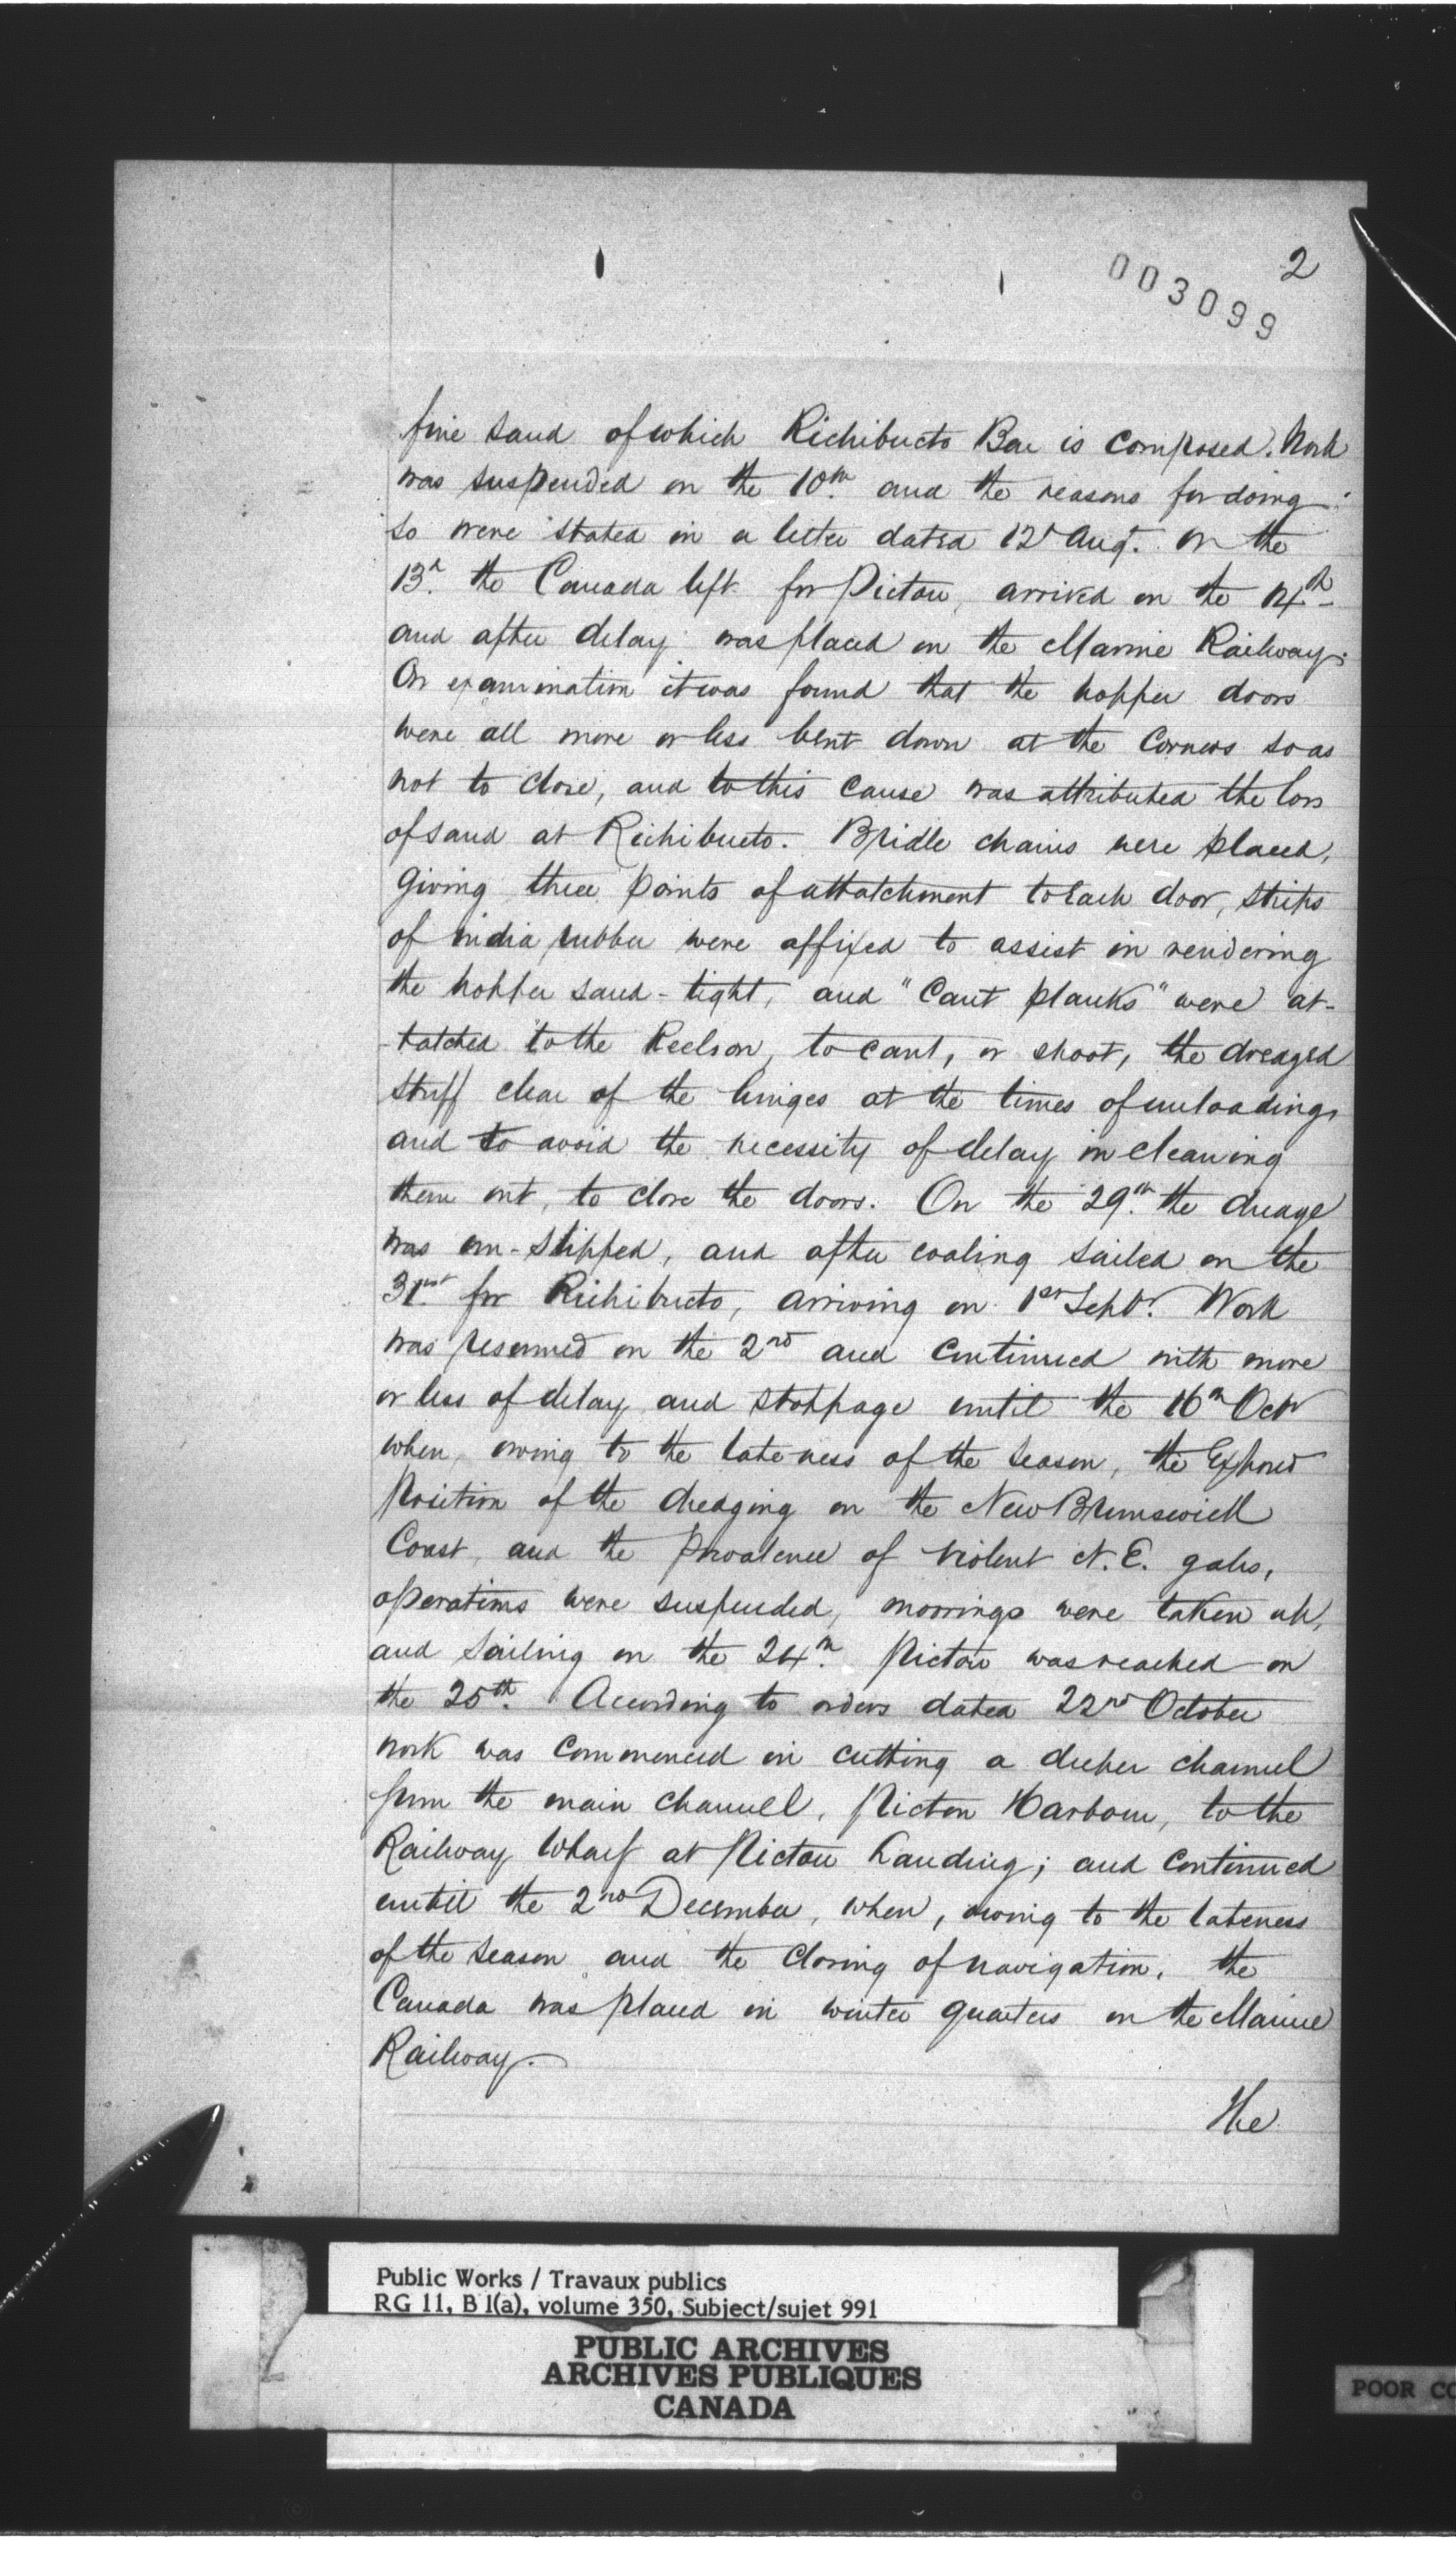 2
003099
fine sand of which Richibucto Bar is composed. Work
was suspended on the 10th. and the reasons for doing
so were stated in a letter dated 12th Augt. On the
13th. the Canada left for Pictou, arrived on the 14th
and after delay was placed on the Marine Railway.
On examination it was found that the hopper doors
were all more or less bent down at the Corners so as
not to close, and to this cause was attributed the loss
of sand at Richibucto. Bridle chains were placed,
giving three points of attatchment to each door, strips
of india rubber were affixed to assist in rendering
the hopper sand-tight, and "Cant planks" were at-
-tatched to the Keelson, to cant, or shoot, the dredged
stuff clear of the hinges at the times of unloading,
and to avoid the necessity of delay in cleaning
them out, to close the doors. On the 29th. the dredge
was un-slipped, and after coaling sailed on the
31st. for Richibucto, arriving on 1st Septr. Work
was resumed on the 2nd and continued with more
or less of delay and stoppage until the 16th Octr
when, owing to the lateness of the season, the Exposed
Position of the dredging on the New Brunswick
Coast, and the prevalence of violent N. E. gales,
operations were suspended, moorings were taken up,
and sailing on the 24th. Pictou was reached on
the 25th. According to orders dated 22nd October
work was commenced in cutting a deeper channel
from the main channel, Pictou Harbour, to the
Railway Wharf at Pictou Landing; and continued
until the 2nd December, when, owing to the lateness
of the season and the closing of navigation, the
Canada was placed in winter quarters on the Marine
Railway.
The
Public Works / Travaux publics
RG 11, B 1(a), volume 350, Subject/sujet 991
PUBLIC ARCHIVES
ARCHIVES PUBLIQUES
CANADA
POOR